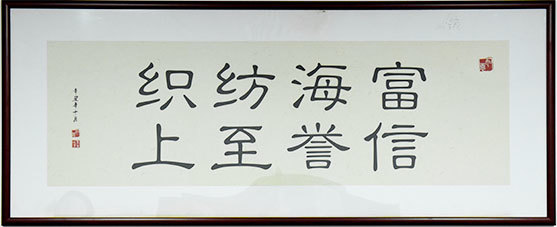 富海纺织
信誉至上